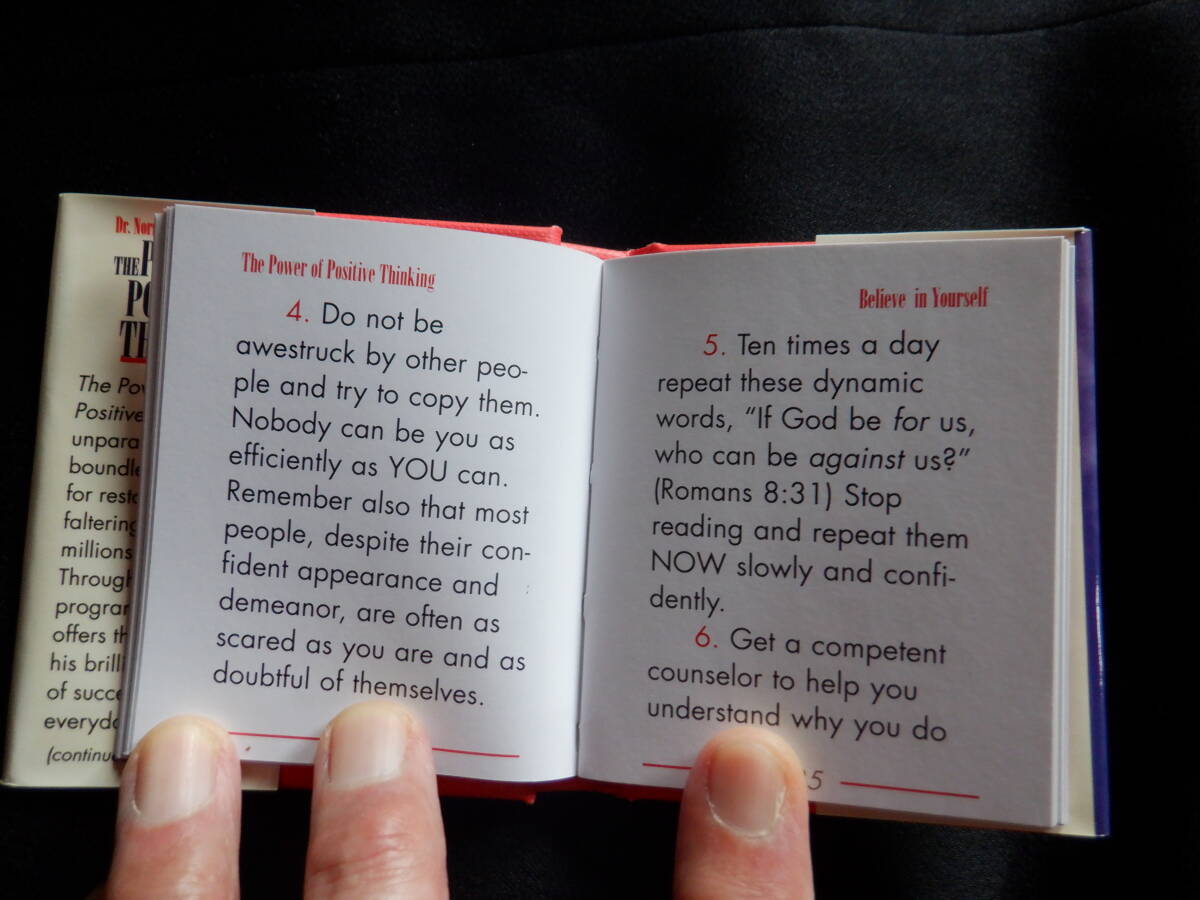 Dr. Nor
THE P
PO
TH
The Pow
Positive
unpara
boundle
for resto
faltering
millions
Through
program
offers th
his brilli
of succe
everyda
(continu
The Power of Positive Thinking
4. Do not be
awestruck by other peo-
ple and try to copy them.
Nobody can be you as
efficiently as YOU can.
Remember also that most
people, despite their con-
fident appearance and
demeanor, are often as
scared as you are and as
doubtful of themselves.
Believe in Yourself
5. Ten times a day
repeat these dynamic
words, “If God be for us,
who can be against us?”
(Romans 8:31) Stop
reading and repeat them
NOW slowly and confi-
dently.
6. Get a competent
counselor to help you
understand why you do
5